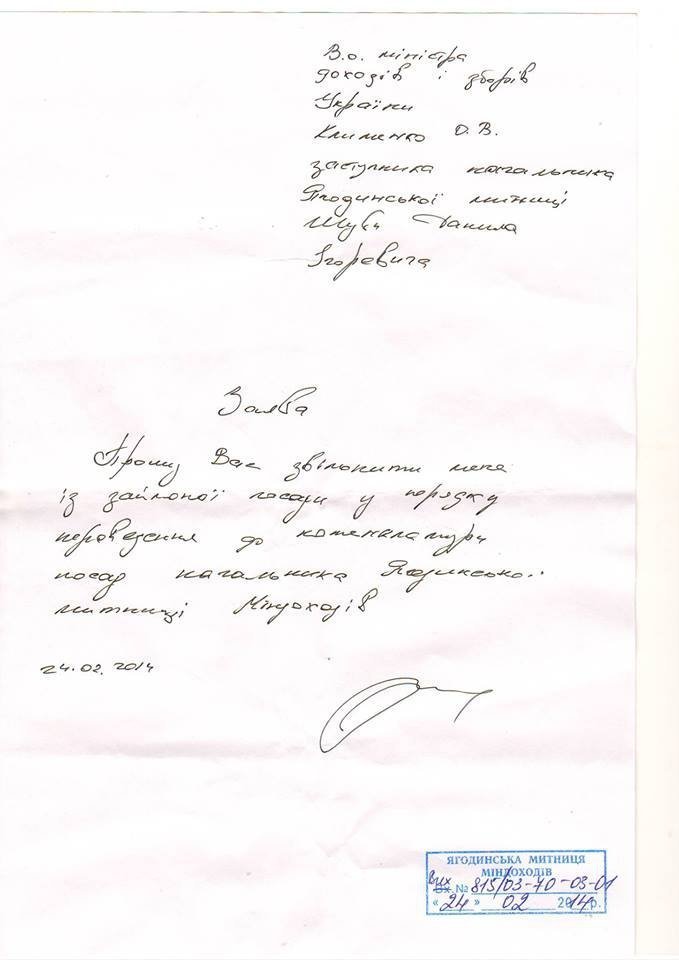 В.о. міністра
доходів і зборів
України
Клименко О.В.
заступника начальника
Ягодинської митниці
Данила
Ігоревича
Заява
Прошу Вас звільнити мене
із займаної посади у порядку
переведення до
посад начальника Ягодинської
митниці Міндоходів
24.02.2014
ЯГОДИНСЬКА МИТНИЦЯ
МІНДОХОДІВ
Вих
Вх. № 815/03-70-03-01
«24» 02 2014р.